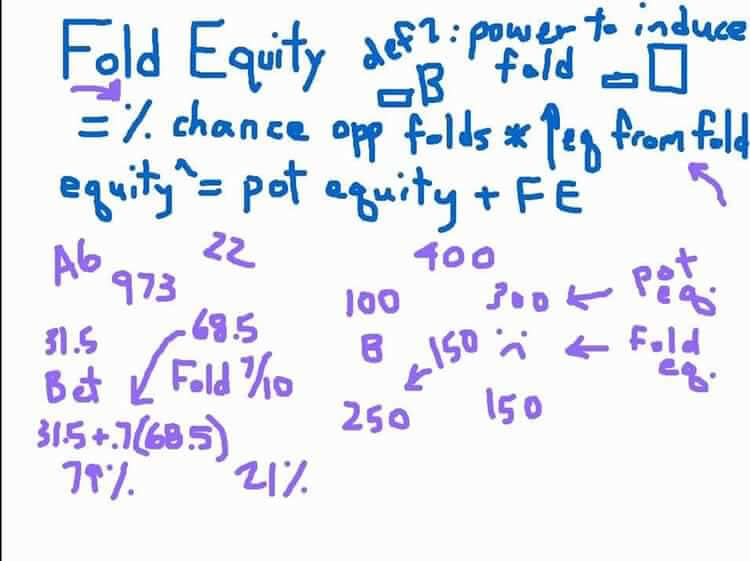 Fold Equity def?: power to induce fold
B
= % chance opp folds * ↑eq from fold
equity^ = pot equity + FE
A6 22 400
973 100 300 ← pot eq.
31.5 68.5 B 150 ← fold eq.
Bet Fold 7/10 250 150
31.5+.7(68.5)
79% 21%